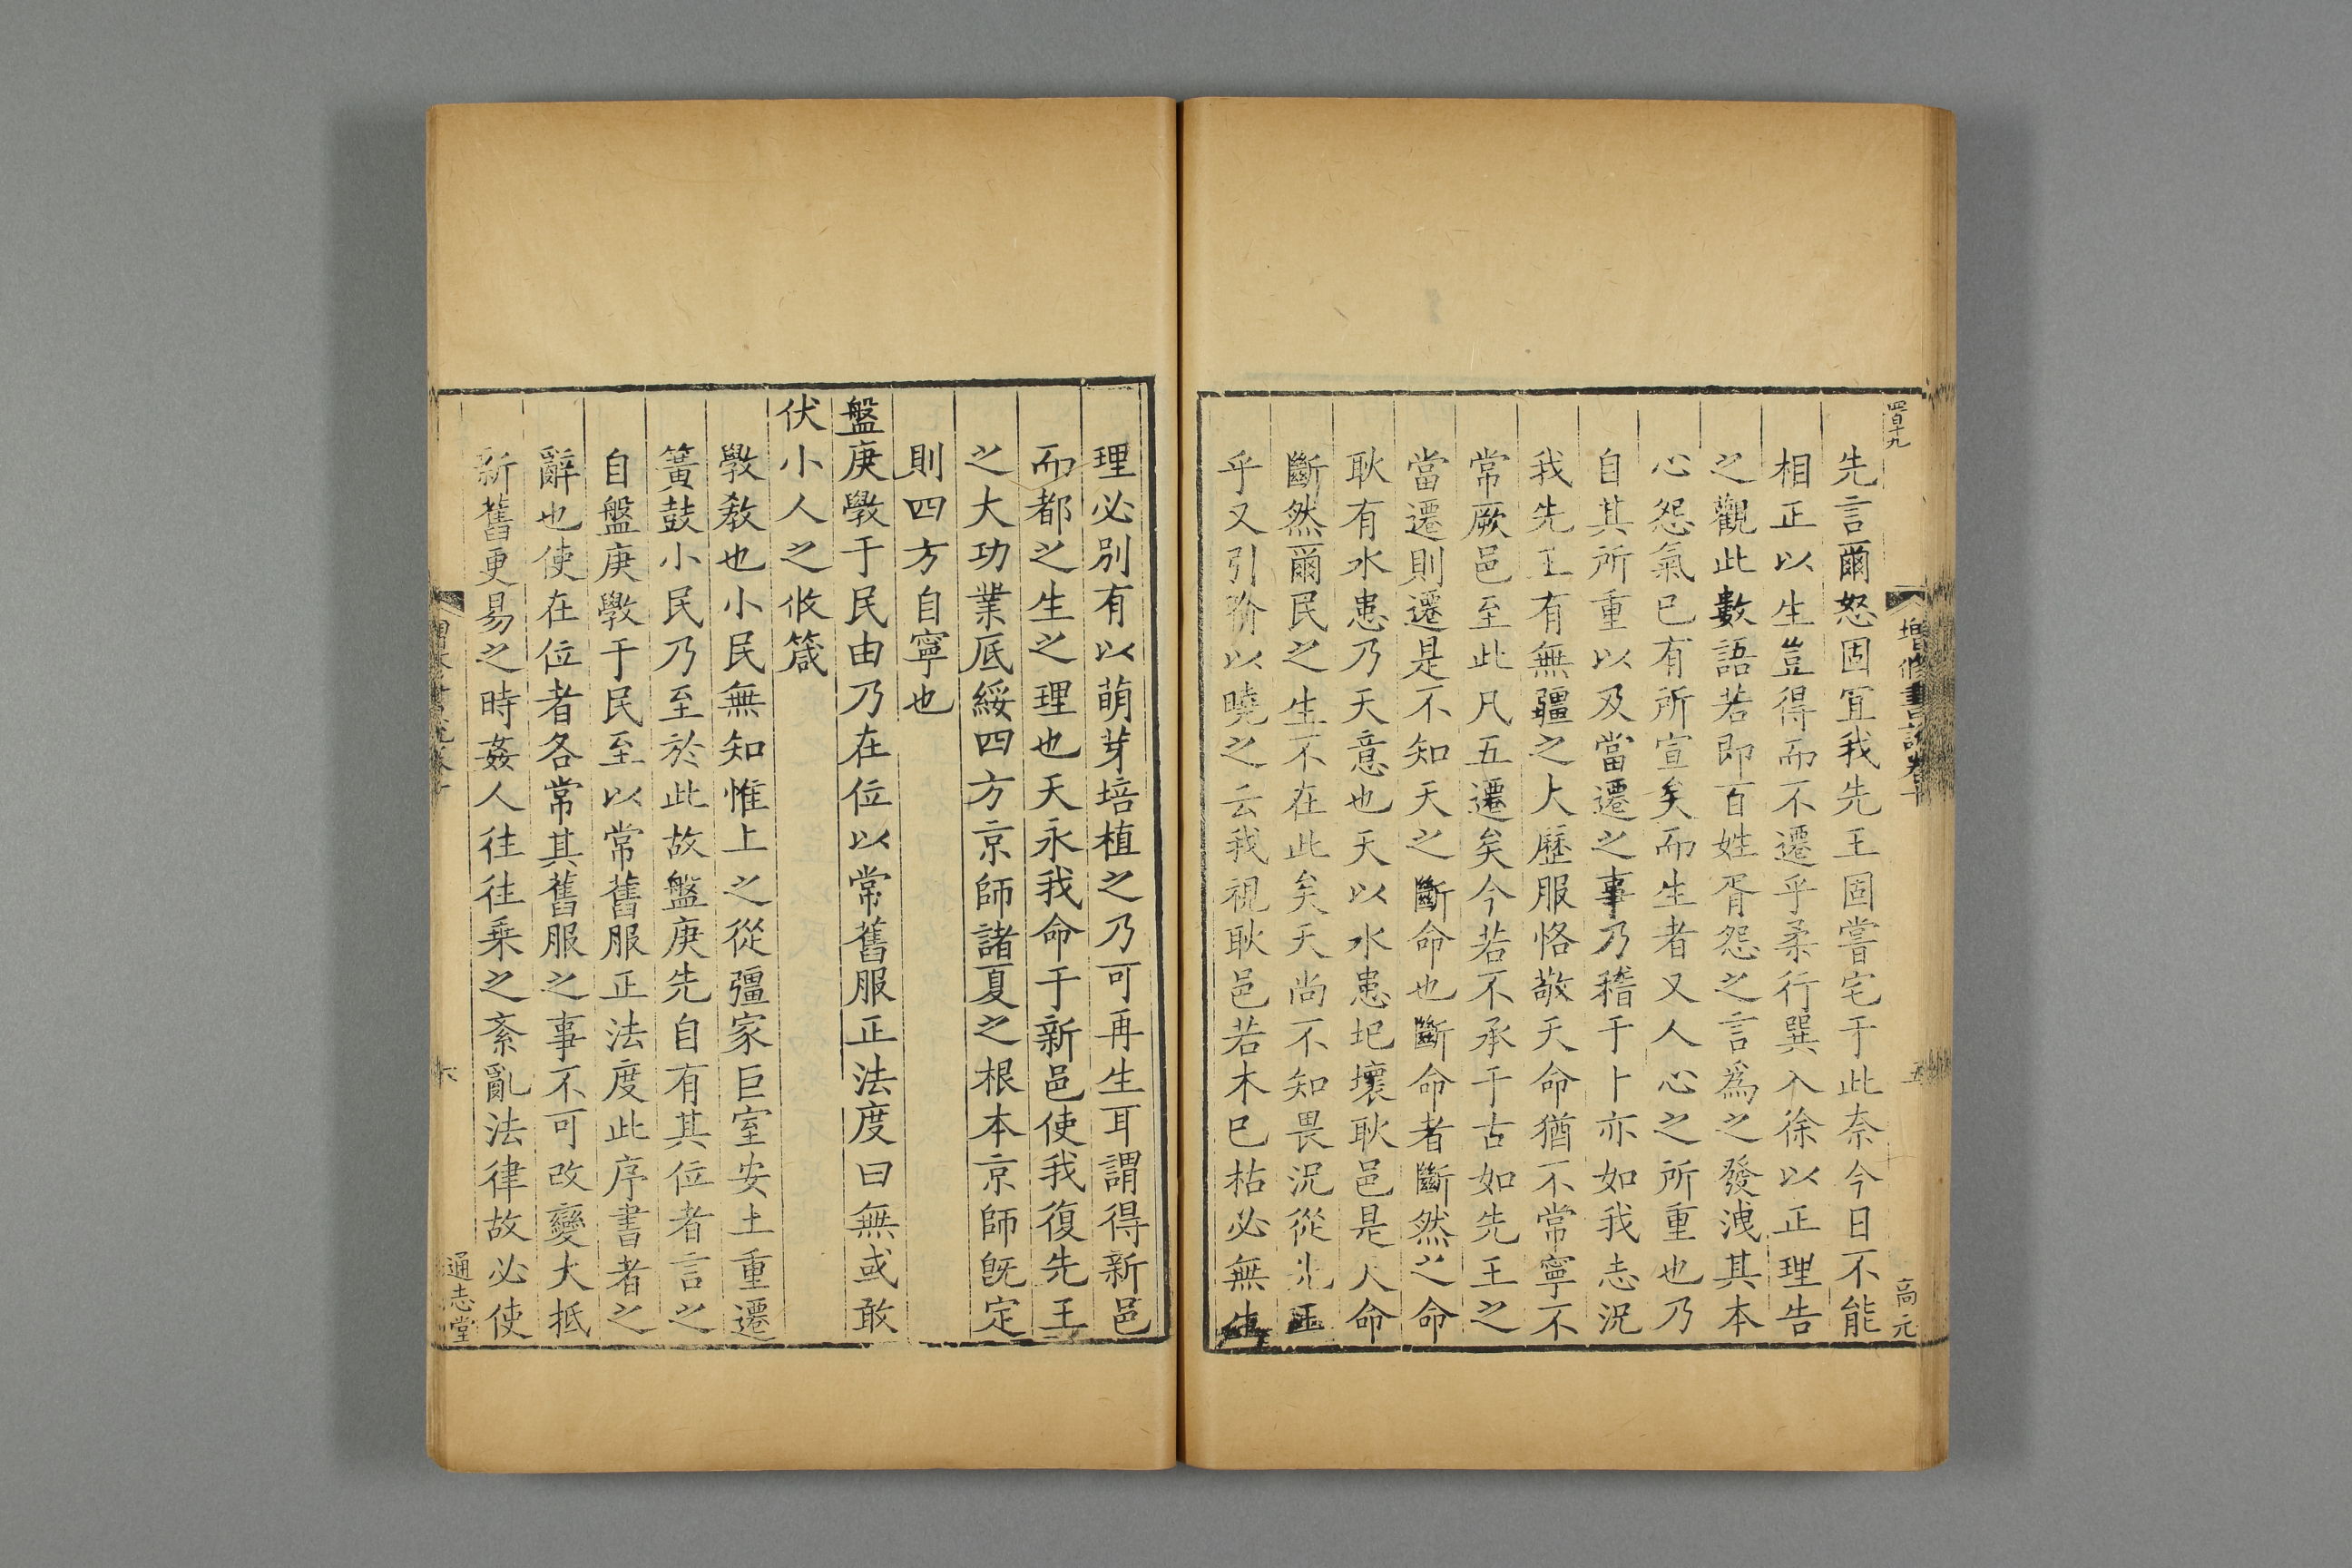 四百十九
增修書說卷十
五
高元
先言爾怒固宜我先王固嘗宅于此奈今日不能
相正以生豈得而不遷乎柔行巽入徐以正理告
之觀此數語若即百姓胥怨之言爲之發洩其本
心怨氣已有所宣矣而生者又人心之所重也乃
自其所重以及當遷之事乃稽于卜亦如我志況
我先王有無疆之大歷服恪敬天命猶不常寧不
常厥邑至此凡五遷矣今若不承于古如先王之
當遷則遷是不知天之斷命也斷命者斷然之命
耿有水患乃天意也天以水患圯壞耿邑是人命
斷然爾民之生不在此矣天尚不知畏況從先王
乎又引喻以曉之云我視耿邑若木已枯必無生
理必別有以萌芽培植之乃可再生耳謂得新邑
而都之生之理也天永我命于新邑使我復先王
之大功業底綏四方京師諸夏之根本京師旣定
則四方自寧也
盤庚斆于民由乃在位以常舊服正法度曰無或敢
伏小人之攸箴
斆敎也小民無知惟上之從彊家巨室安土重遷
簧鼓小民乃至於此故盤庚先自有其位者言之
自盤庚斆于民至以常舊服正法度此序書者之
辭也使在位者各常其舊服之事不可改變大抵
新舊更易之時姦人往往乗之紊亂法律故必使
六
通志堂